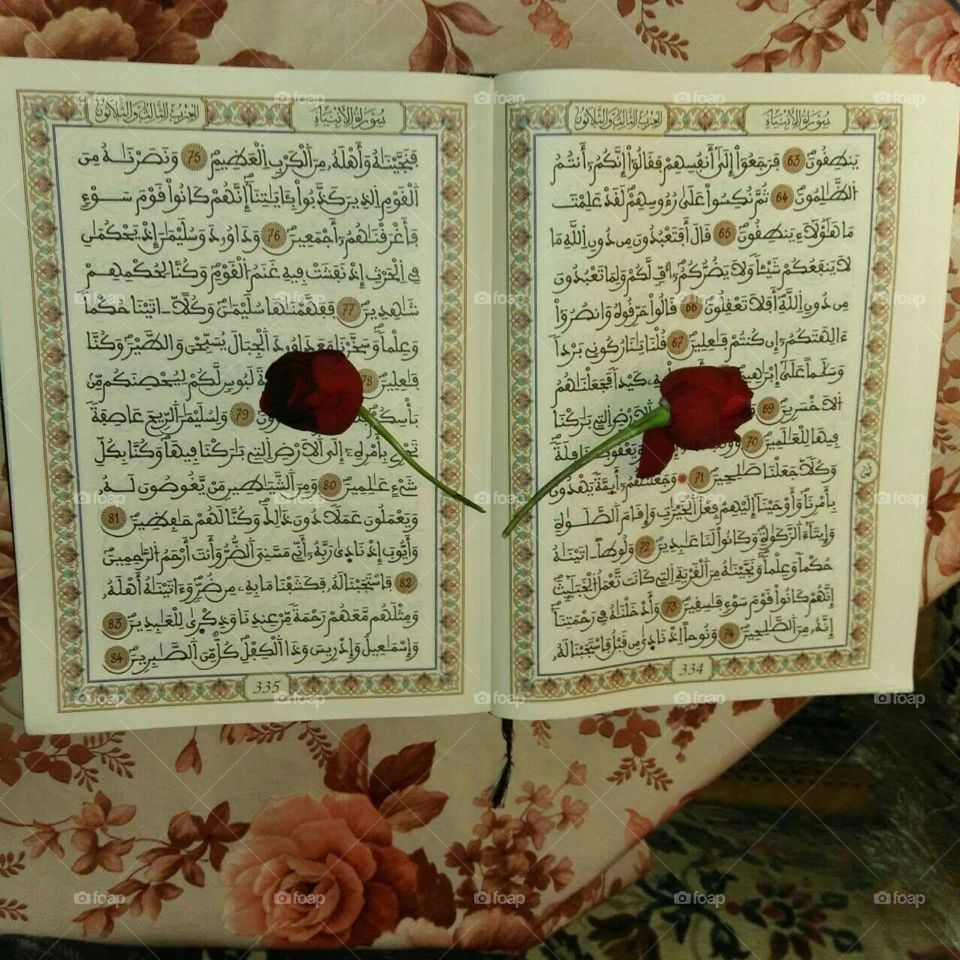 سورة الأنبياء
الحزب الثالث والثلاثون
ينطقون 63 فرجعوا إلى أنفسهم فقالوا إنكم أنتم
الظالمون 64 ثم نكسوا على رءوسهم لقد علمت
ما هؤلاء ينطقون 65 قال أفتعبدون من دون الله ما
لا ينفعكم شيئا ولا يضركم أف لكم ولما تعبدون
من دون الله أفلا تعقلون 66 قالوا حرقوه وانصروا
ءالهتكم إن كنتم فاعلين 67 قلنا يانار كوني بردا
وسلاما على إبراهيم به كيدا فجعلناهم
الأخسرين 69 الأرض التي باركنا
فيها للعالمين 70 ويعقوب نافلة
وكلا جعلنا صالحين 71 وجعلناهم أئمة يهدون
بأمرنا وأوحينا إليهم فعل الخيرات وإقام الصلاة
وإيتاء الزكاة وكانوا لنا عابدين 72 ولوطا اتيناه
حكما وعلما ونجيناه من القرية التي كانت تعمل الخبائث
إنهم كانوا قوم سوء فاسقين 73 وأدخلناه في رحمتنا
إنه من الصالحين 74 ونوحا إذ نادى من قبل فاستجبنا له
334
سورة الأنبياء
الحزب الثالث والثلاثون
فنجيناه وأهله من الكرب العظيم 75 ونصرناه من
القوم الذين كذبوا بئاياتنا إنهم كانوا قوم سوء
فأغرقناهم أجمعين 76 وداوود وسليمان إذ يحكمان
في الحرث إذ نفشت فيه غنم القوم وكنا لحكمهم
شاهدين 77 ففهمناها سليمان وكلا اتينا حكما
وعلما وسخرنا مع داوود الجبال يسبحن والطير وكنا
فاعلين 78 لبوس لكم ليحصنكم من
بأسكم 79 ولسليمان الريح عاصفة
تجري بأمره إلى الأرض التي باركنا فيها وكنا بكل
شيء عالمين 80 ومن الشياطين من يغوصون له
ويعملون عملا دون ذالك وكنا لهم حافظين 81
وأيوب إذ نادى ربه أني مسني الضر وأنت أرحم الراحمين
82 فاستجبنا له فكشفنا ما به من ضر وءاتيناه أهله
ومثلهم معهم رحمة من عندنا وذكرى للعابدين 83
وإسماعيل وإدريس وذا الكفل كل من الصابرين 84
335
foap